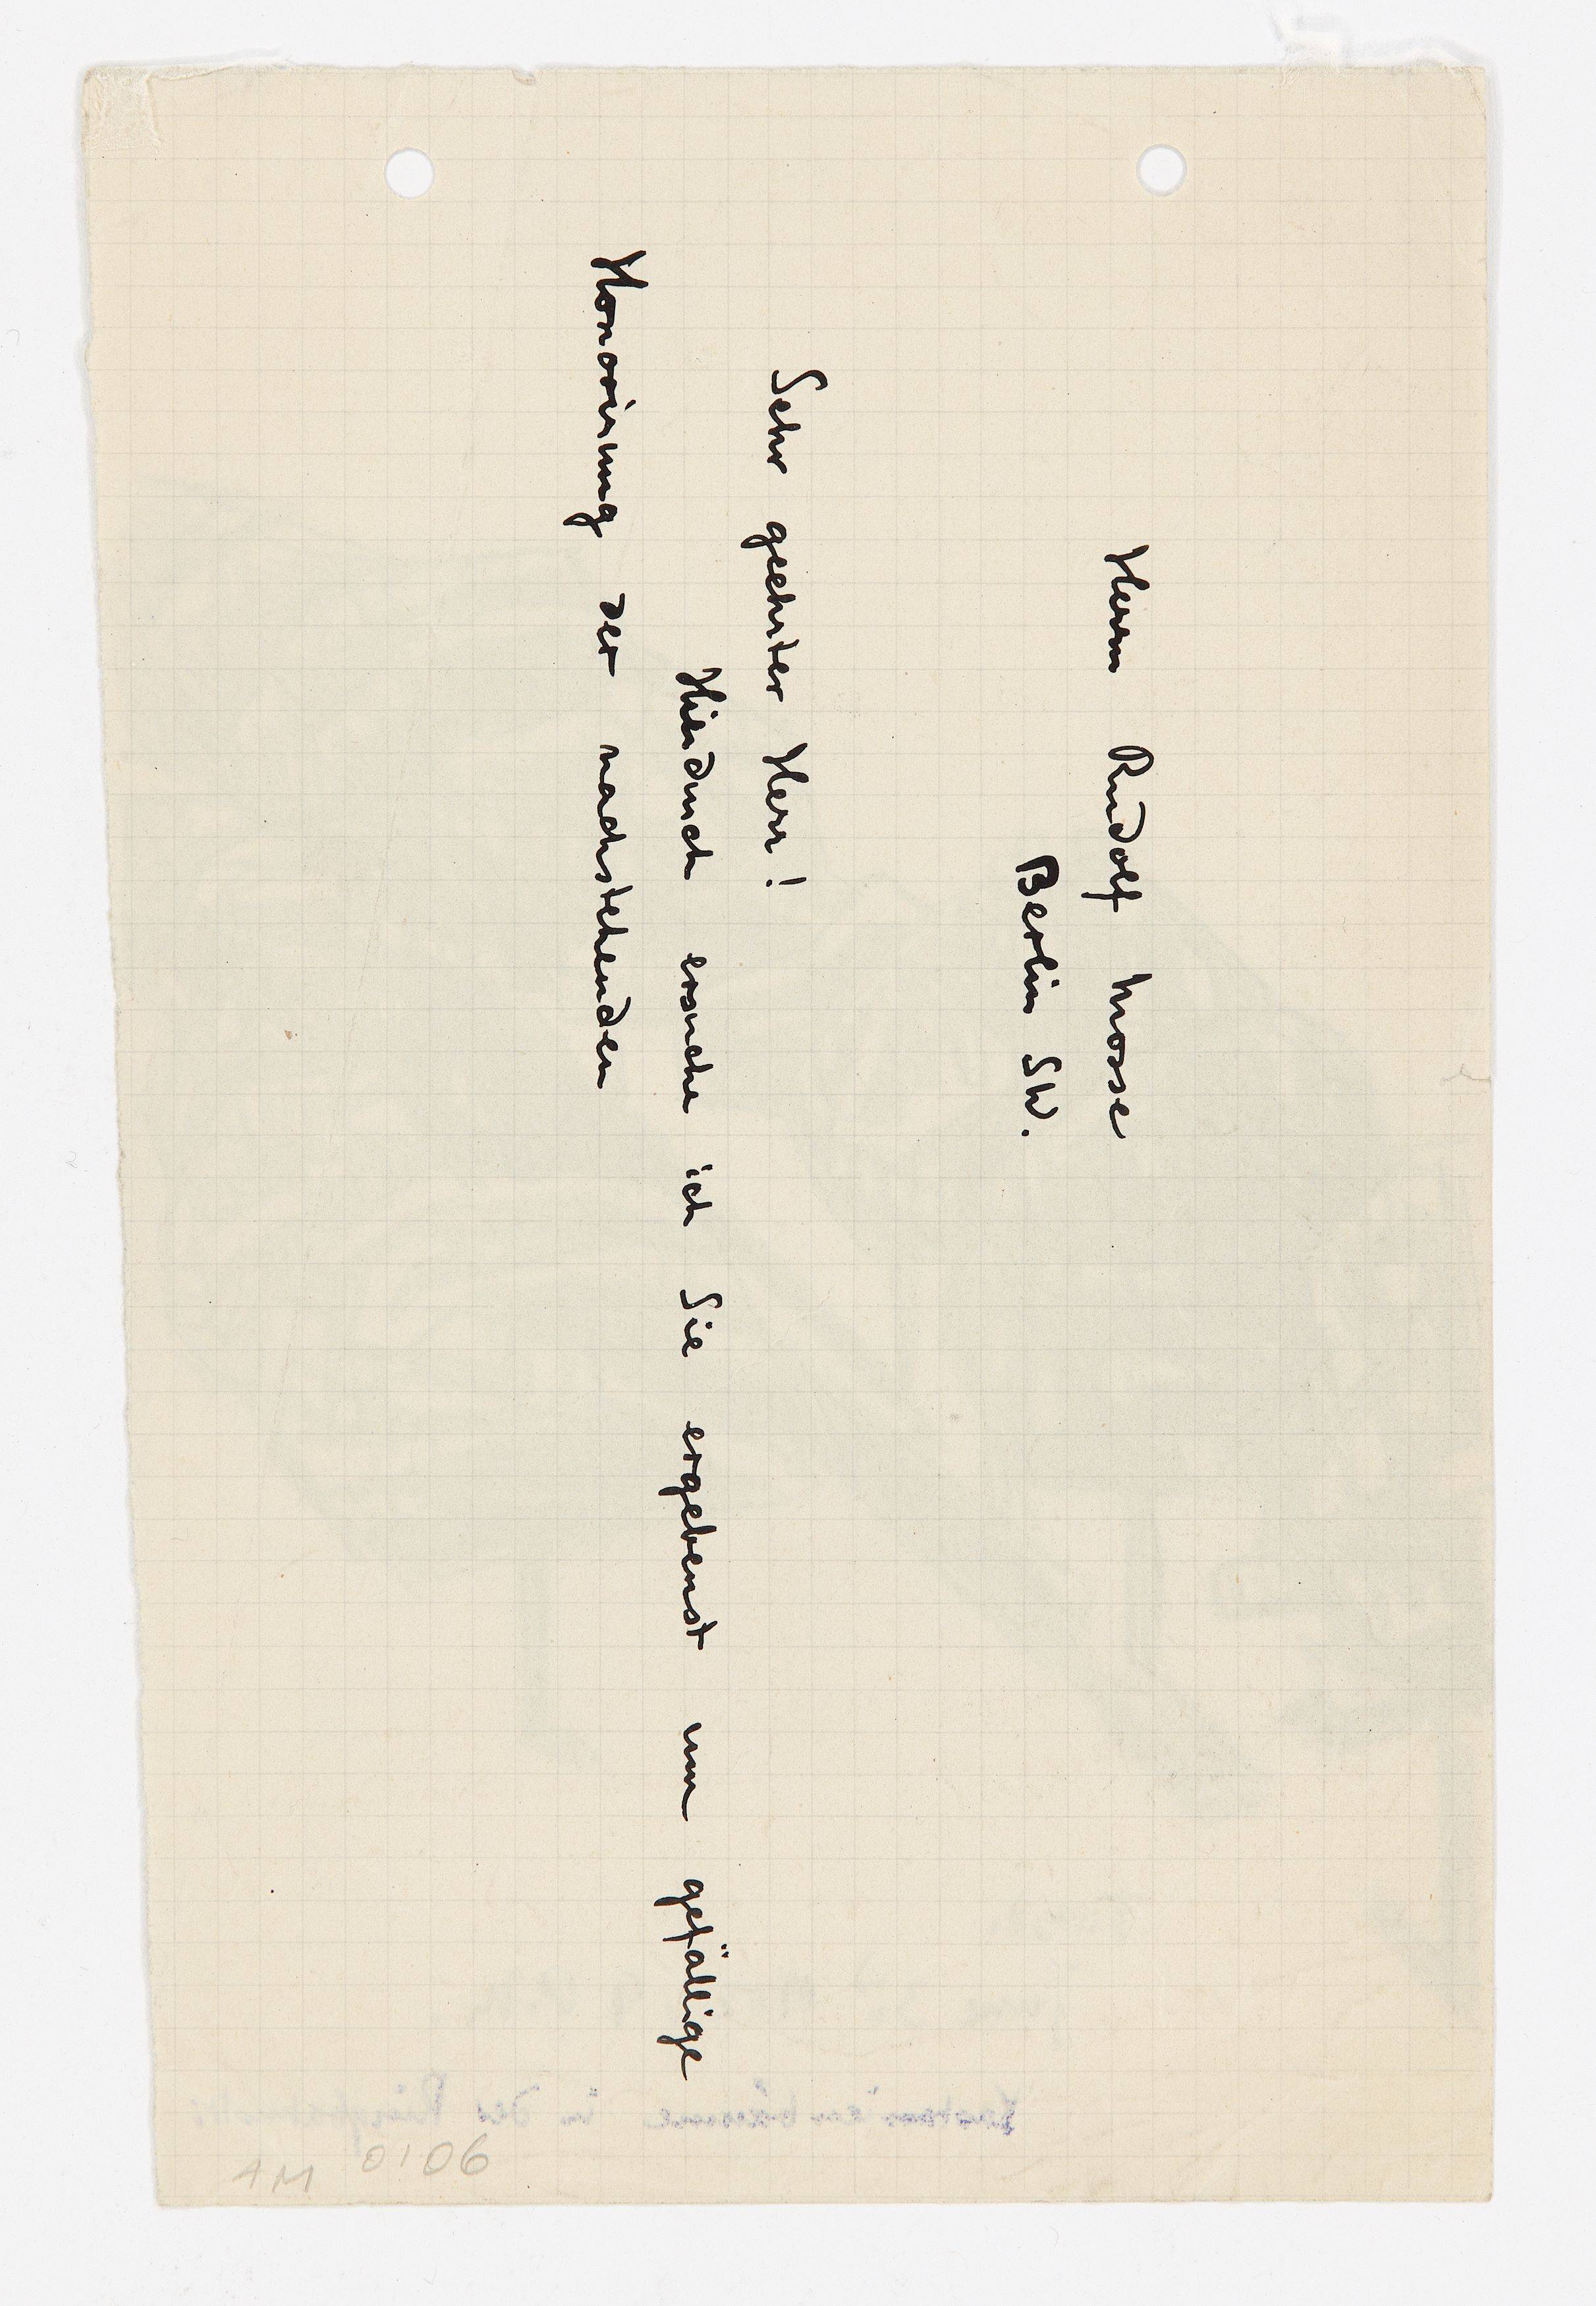 Herrn Rudolf Mosse
Berlin SW.
Sehr geehrter Herr!
Hierdurch ersuche ich Sie ergebenst um gefällige
Honorirung der nachstehenden
AM 0106